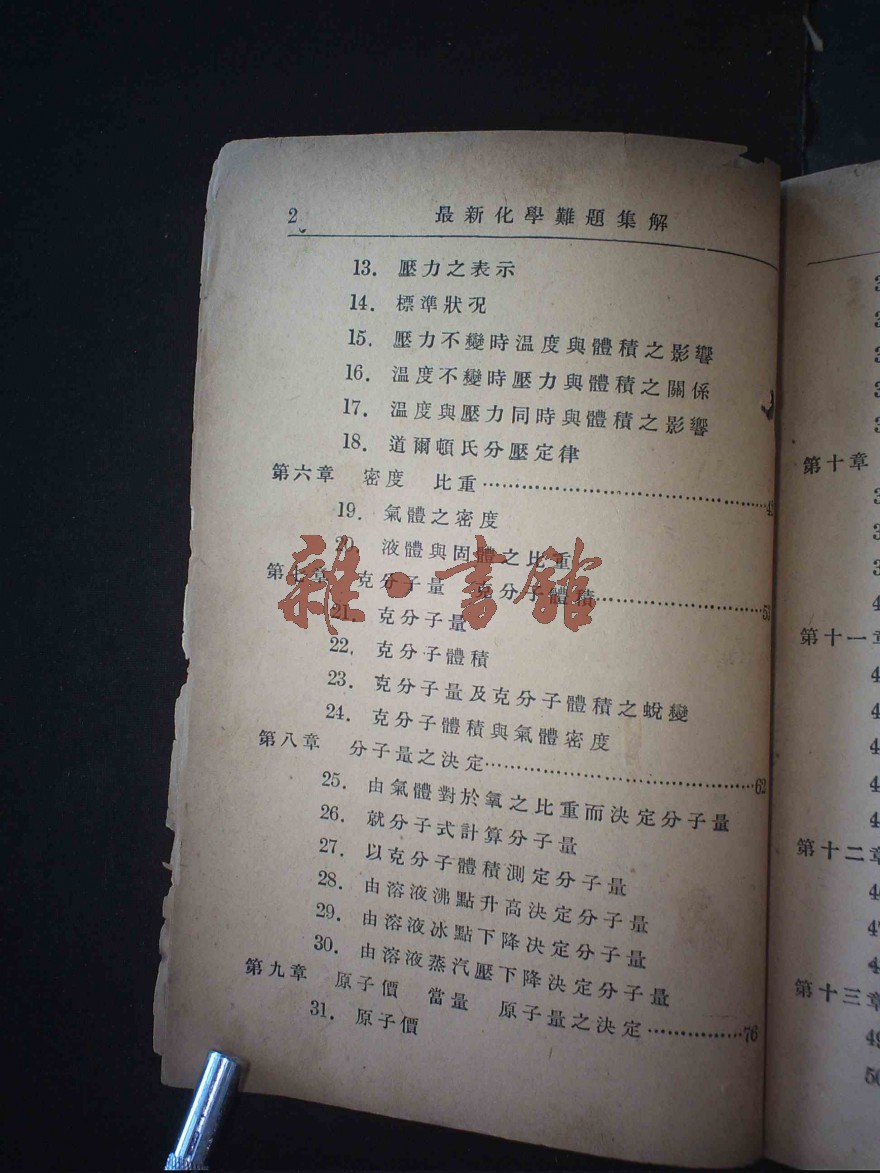 2 最新化學難題集解
13. 壓力之表示
14. 標準狀况
15. 壓力不變時温度與體積之影響
16. 温度不變時壓力與體積之關係
17. 温度與壓力同時與體積之影響
18. 道爾頓氏分壓定律
第六章 密度 比重……………………42
19. 氣體之密度
20. 液體與固體之比重
第七章 克分子量 克分子體積……………53
21. 克分子量
22. 克分子體積
23. 克分子量及克分子體積之蛻變
24. 克分子體積與氣體密度
第八章 分子量之決定……………………62
25. 由氣體對於氧之比重而決定分子量
26. 就分子式計算分子量
27. 以克分子體積測定分子量
28. 由溶液沸點升高決定分子量
29. 由溶液冰點下降决定分子量
30. 由溶液蒸汽壓下降決定分子量
第九章 原子價 當量 原子量之决定……………76
31. 原子價
雜·書館
第十章
第十一章
第十二章
第十三章
49
50